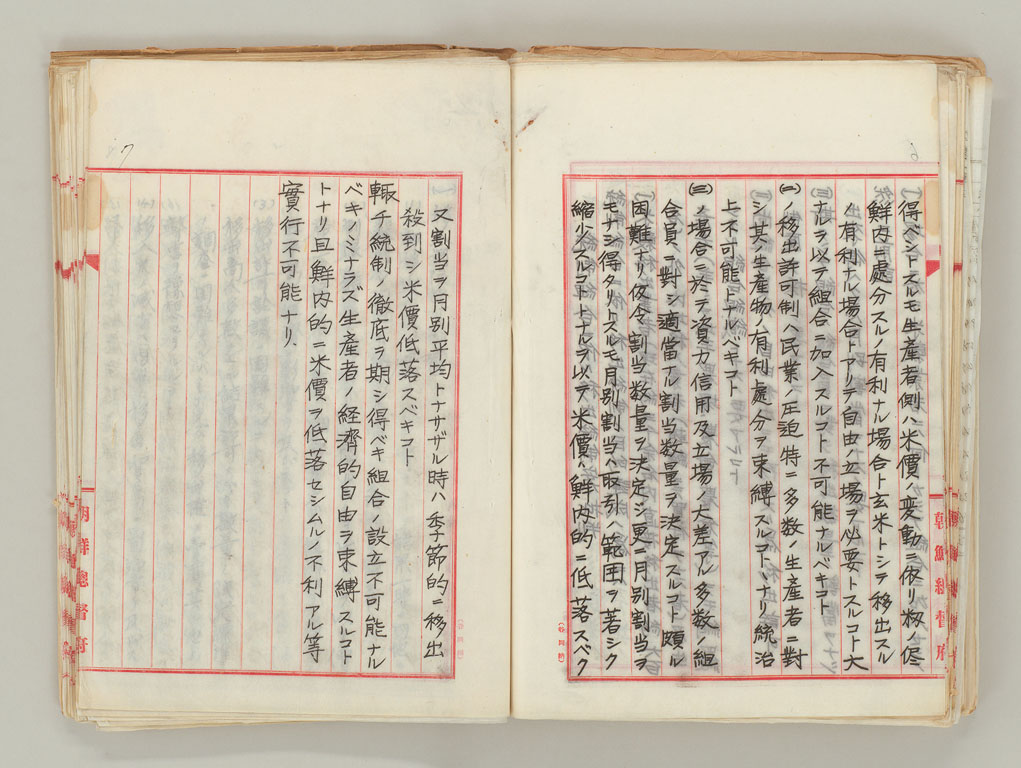 6
得ベシトスルモ生産者側ハ米價ノ変動ニ依リ籾ノ侭
鮮内ニ處分スルノ有利ナル場合ト玄米トシテ移出スル
ノ有利ナル場合トアリテ自由ノ立場ヲ必要トスルコト大
ナルヲ以テ組合ニ加入スルコト不可能ナルベキコト
(一)ノ移出許可制ハ民業ノ圧迫特ニ多数ノ生産者ニ對
シ其ノ生産物ノ有利處分ヲ束縛スルコトヽナリ統治
上不可能トナルベキコト
(三)ノ場合ニ於テ資力信用及立場ノ大差アル多数ノ組
合員ニ對シ適當ナル割当数量ヲ決定スルコト頗ル
困難ナリ仮令割当数量ヲ決定シ更ニ月別割当ヲ
モナシ得タリトスルモ月別割当ハ取引ノ範囲ヲ若シク
縮少スルコトトナルヲ以テ米價ハ鮮内的ニ低落スベク
朝鮮總督府
7
又割当ヲ月別平均トナサザル時ハ季節的ニ移出
殺到シ米價低落スベキコト
輙チ統制ノ徹底ヲ期シ得ベキ組合ノ設立不可能ナル
ベキノミナラズ生産者ノ経濟的自由ヲ束縛スルコト
トナリ且鮮内的ニ米價ヲ低落セシムルノ不利アル等
實行不可能ナリ、
朝鮮總督府